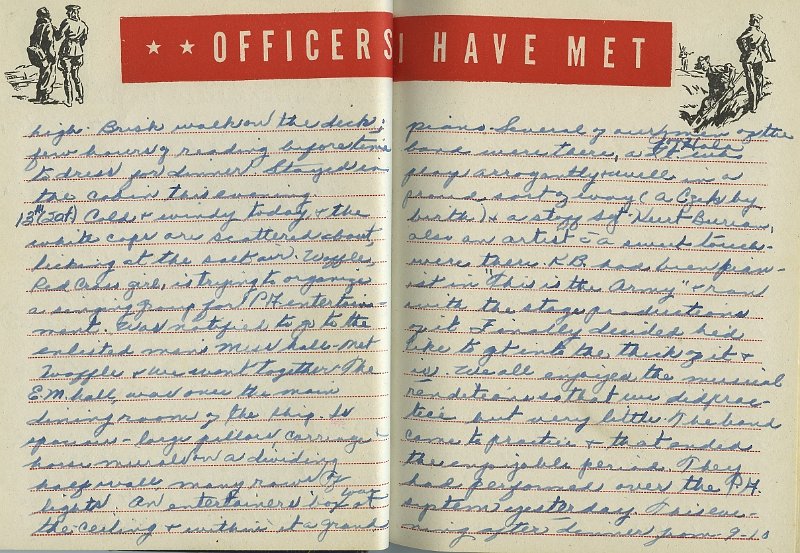 ★ ★ OFFICERS I HAVE MET
high. Brisk walk on the deck;
few hours of reading before time
to dress for dinner. Stayed in
the cabin this evening.
13th (Sat) Cold & windy today & the
white caps are scattered about,
licking at the salt air. Waffle,
Red Cross girl, is trying to organize
a singing group for P.A. entertain-
ment. Was notified to go to the
enlisted men's mess hall. Met
Waffle & we went together. The
E.M. hall, was over the main
dining room of the ship. Is
spacious - large pillars carriage
horse murals on a dividing
half walls many rows of
lights. An entertainers' box was at
the ceiling & within it a grand
piano. Several of our men of the
band were there, a Lt. Hala who
play arrogantly & well in a
sort of way (a Czech by
birth) & a staff Sgt. Kurt Burian,
also an artist c̄ a sweet touch -
were there. K.B. had been pian-
ist in "This is the Army" & ran
with the stage productions
of it. Finally decided he'd
like to get into the thick of it &
is. We all enjoyed the musical
renditions so that we did prac-
tice but very little. The band
came to practice & that ended
the enjoyable period. They
had performed over the P.A.
system yesterday. This eve-
ning after dinner from 9-10